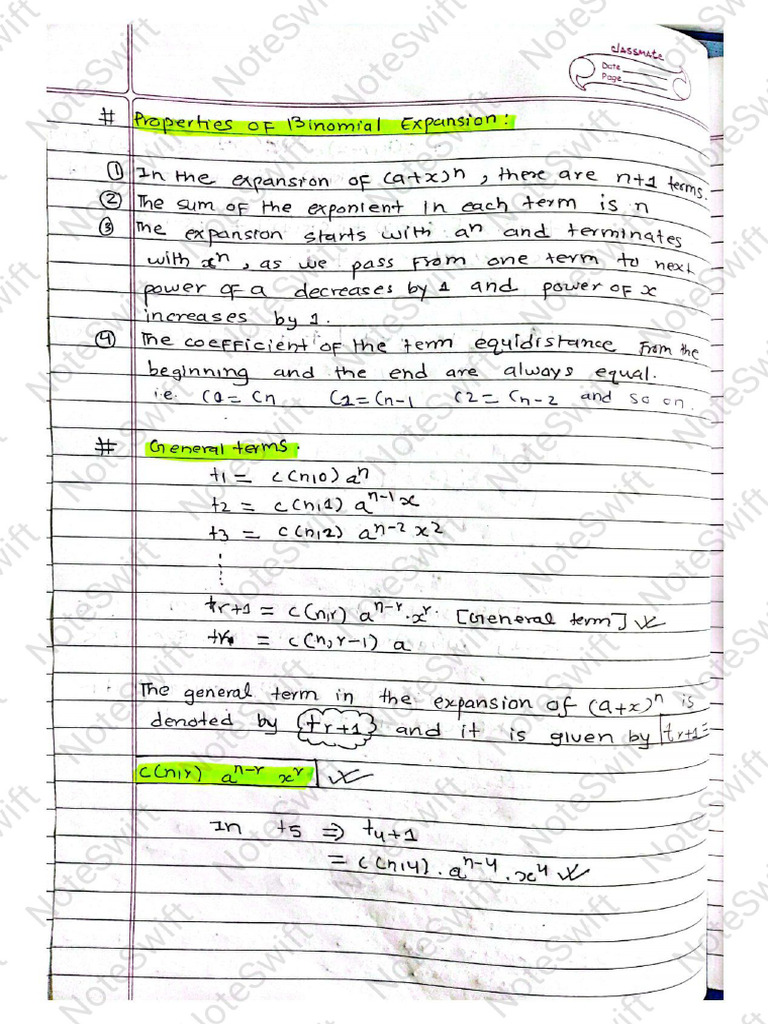 classmate
Date
Page
# Properties of Binomial Expansion:
① In the expansion of (a+x)ⁿ, there are n+1 terms.
② The sum of the exponient in each term is n
③ The expansion starts with aⁿ and terminates
with xⁿ, as we pass from one term to next
power of a decreases by 1 and power of x
increases by 1.
④ The coefficient of the term equidistance from the
beginning and the end are always equal.
i.e. C0=Cn C1=Cn-1 C2=Cn-2 and so on.
# General terms.
t1 = c(n,0) aⁿ
t2 = c(n,1) aⁿ⁻¹x
t3 = c(n,2) aⁿ⁻² x²
tr+1 = c(n,r) aⁿ⁻ʳ.xʳ. [General term]
tr = c(n,r-1) a
The general term in the expansion of (a+x)ⁿ is
denoted by (tr+1) and it is given by tr+1=
c(n,r) aⁿ⁻ʳ xʳ
In t5 ⇒ t4+1
= c(n,4).aⁿ⁻⁴.x⁴
NoteSwift